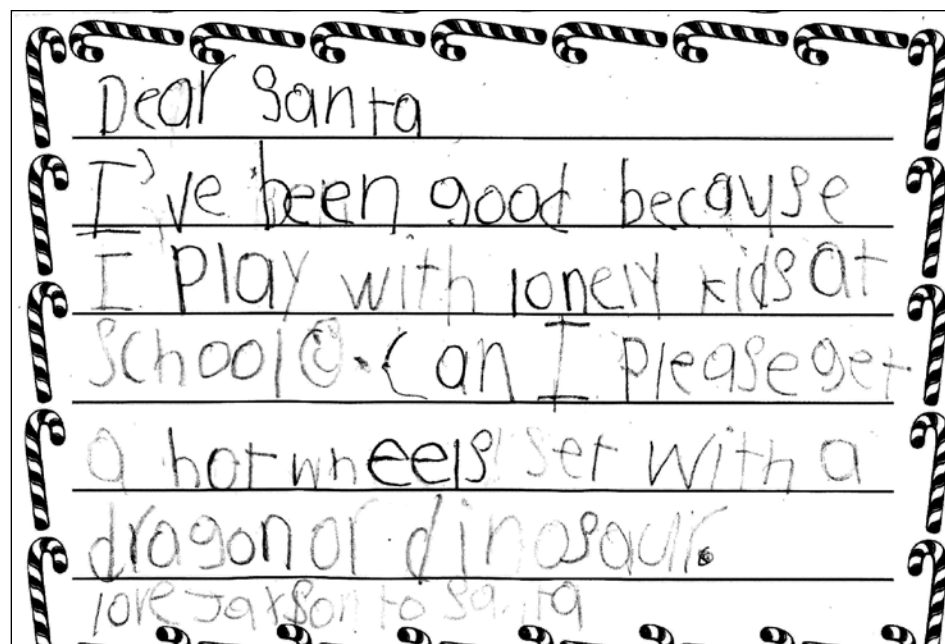 Dear Santa
I've been good because
I play with lonely kids at
school☺. Can I please get
a hot wheels set with a
dragon or dinosaur.
love Jaxson to Santa